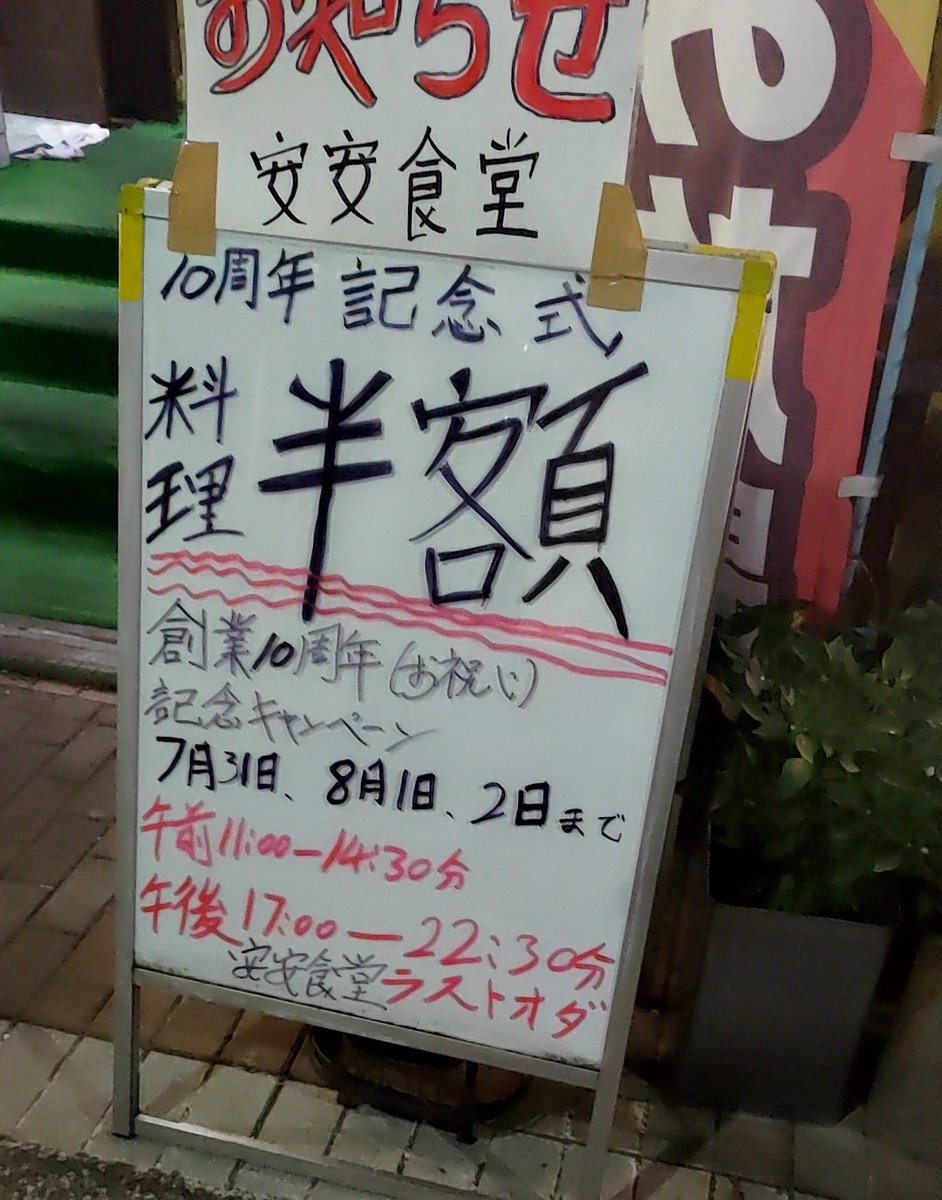 お知らせ
安安食堂
10周年 記念式
料理 半額
創業10周年(お祝い)
記念キャンペーン
7月31日、8月1日、2日まで
午前11:00-14:30分
午後17:00-22:30分
安安食堂ラストオダ